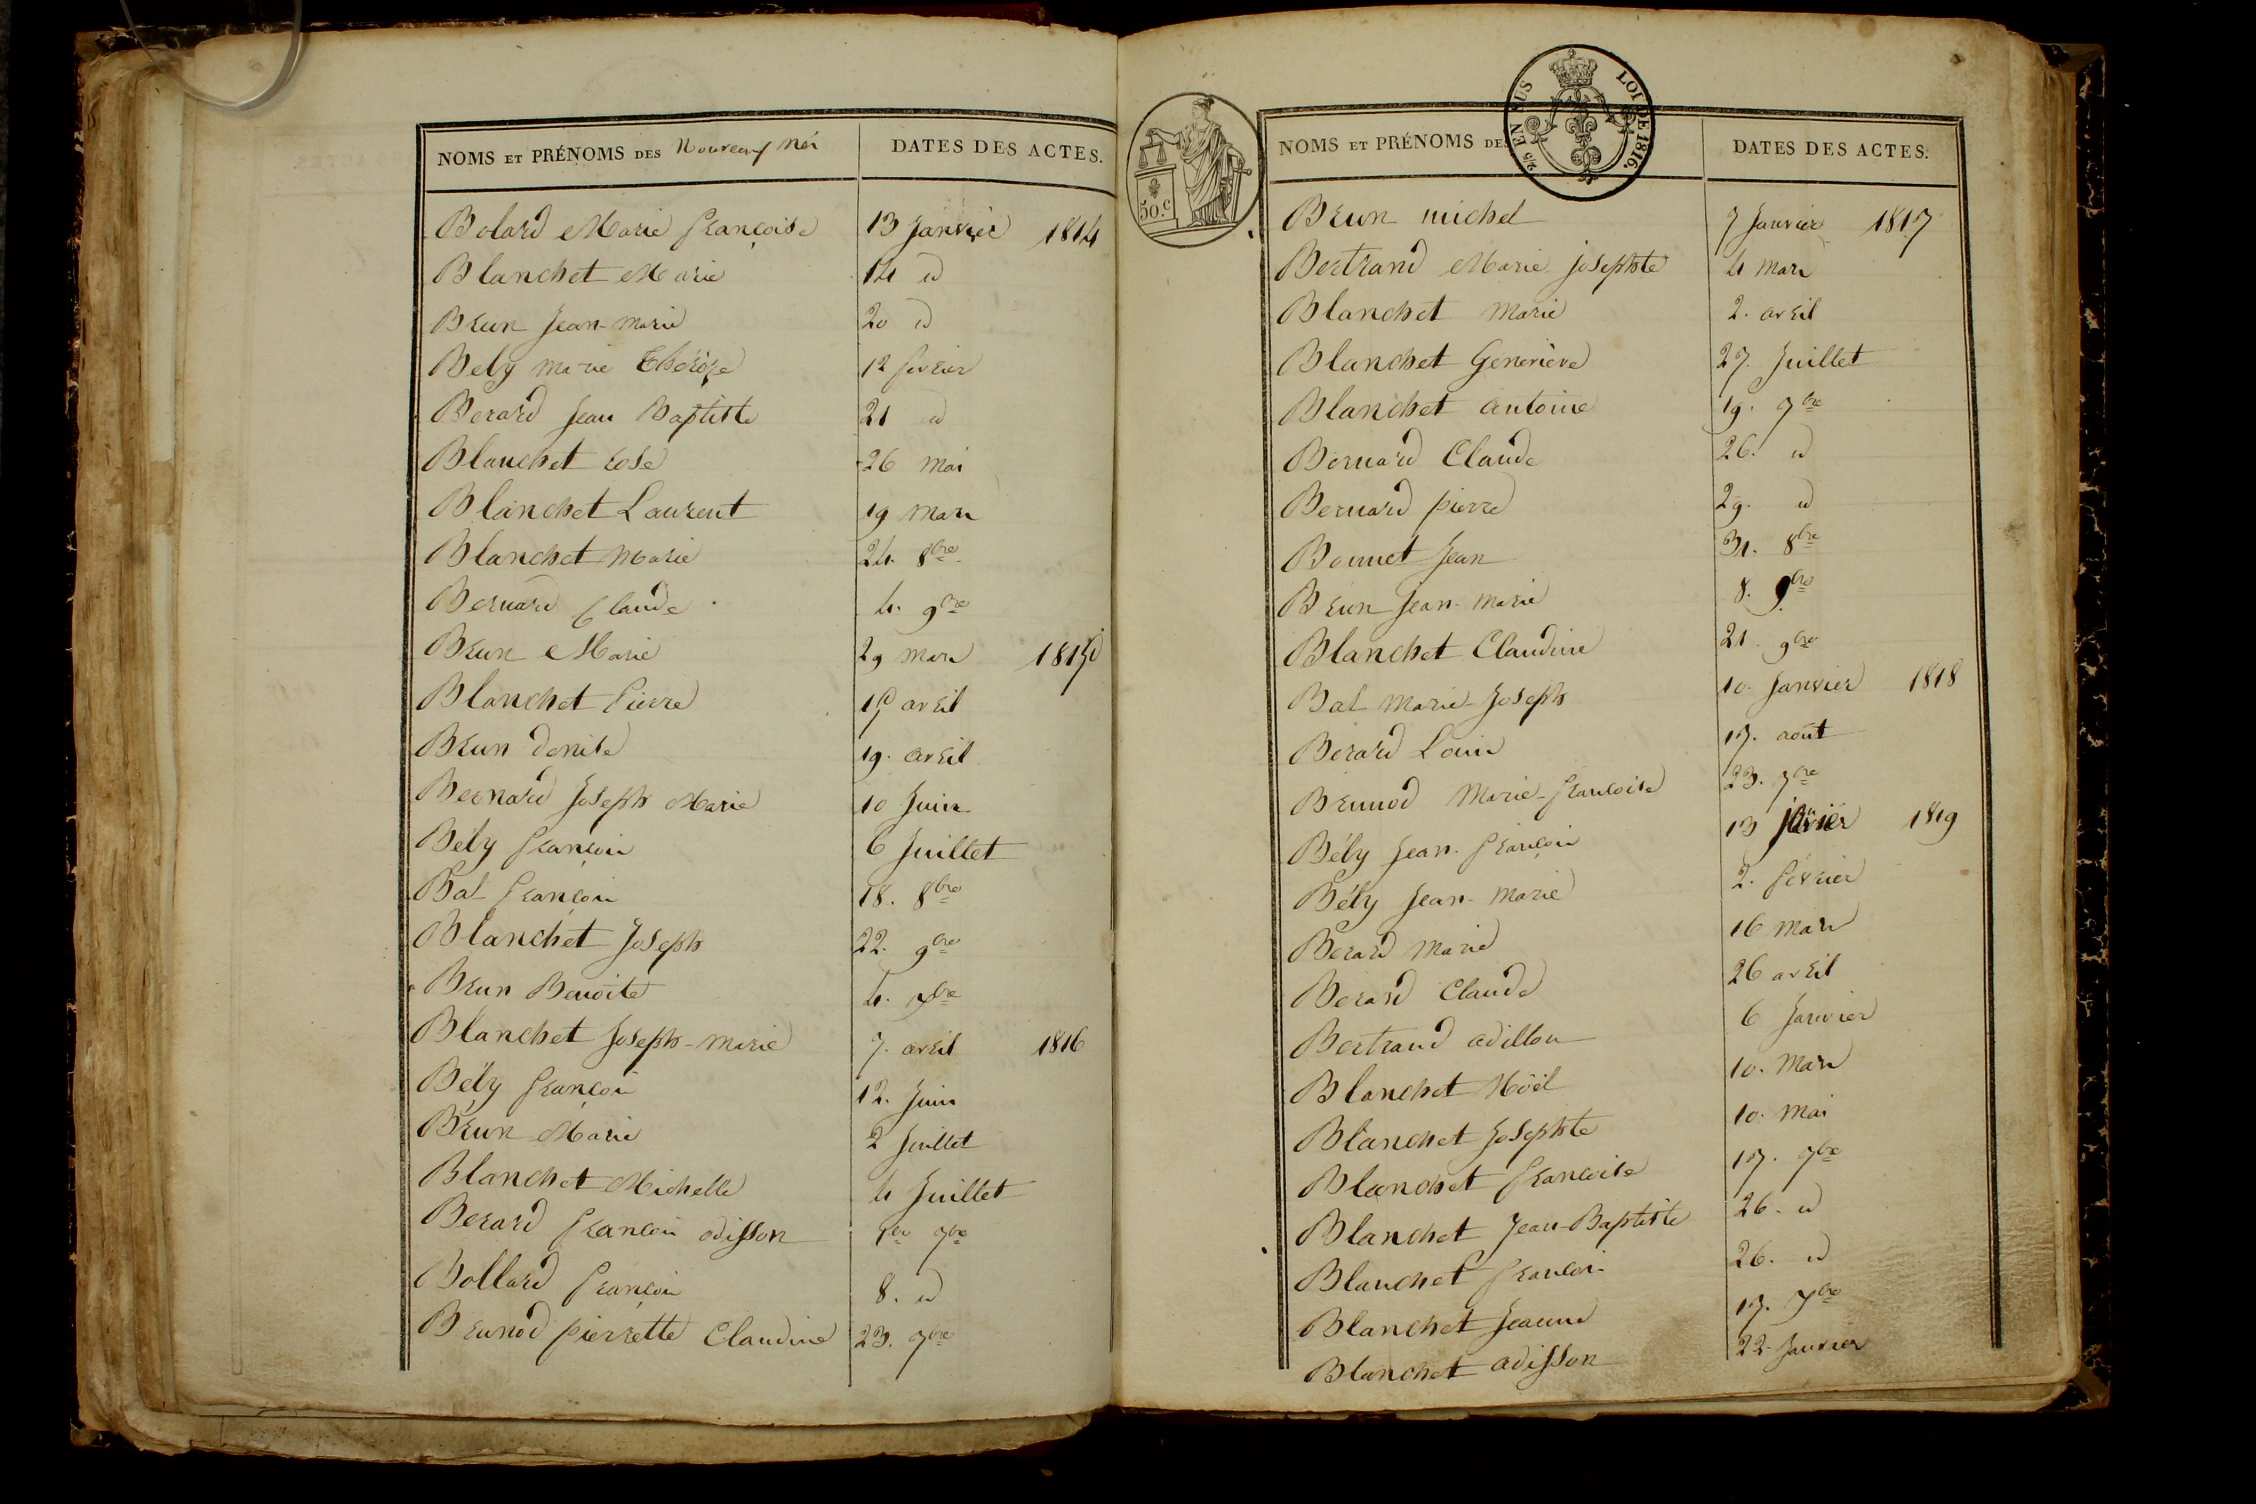 NOMS ET PRÉNOMS DES Nouveaux Nés DATES DES ACTES.
Bolard Marie françoise 13 Janvier 1814
Blanchet Marie 14 id
Brun Jean-marie 20 id
Bely marie Thérèze 12 fevrier
Berard Jean Baptiste 21 id
Blanchet rose 26 Mai
Blanchet Laurent 19 mars
Blanchet Marie 24. 8bre
Bernard Claude 4. 9bre
Brun Marie 29 mars 1815
Blanchet Pierre 15 avril
Brun denise 19. avril
Bernard Joseph Marie 10 Juin
Bély françois 6 Juillet
Bal françois 18. 8bre
Blanchet Joseph 22. 9bre
Brun Benoite 4. 7bre
Blanchet Joseph-marie 7. avril 1816
Bély françois 12. Juin
Brun Marie 2 Juillet
Blanchet Michelle 4 Juillet
Berard françois adisson 1er 7bre
Bollard françois 8. id
Brunod pierrette Claudine 23. 7bre
50.c
25 EN SUS LOI DE 1816.
NOMS ET PRÉNOMS DES DATES DES ACTES.
Brun michel 7 Janvier 1817
Bertrand Marie josephte 4 mars
Blanchet Marie 2. avril
Blanchet Geneviève 27. Juillet
Blanchet antoine 19. 7bre
Bernard Claude 26. id
Bernard pierre 29. id
Bonnet Jean 31. 8bre
Brun Jean-marie 8. 9bre
Blanchet Claudine 21. 9bre
Bal Marie-Joseph 10. Janvier 1818
Berard Louis 17. août
Brunod Marie-françoise 23. 7bre
Bély Jean-françois 13 janvier 1819
Bély Jean-Marie 2. février
Berard Marie 16 mars
Berard Claude 26 avril
Bertrand adillon 6 Janvier
Blanchet Noël 10. Mars
Blanchet Josephte 10. Mai
Blanchet françoise 17. 7bre
Blanchet Jean-Baptiste 26. id
Blanchet françois 26. id
Blanchet Jeanne 17. 7bre
Blanchet adisson 22 Janvier